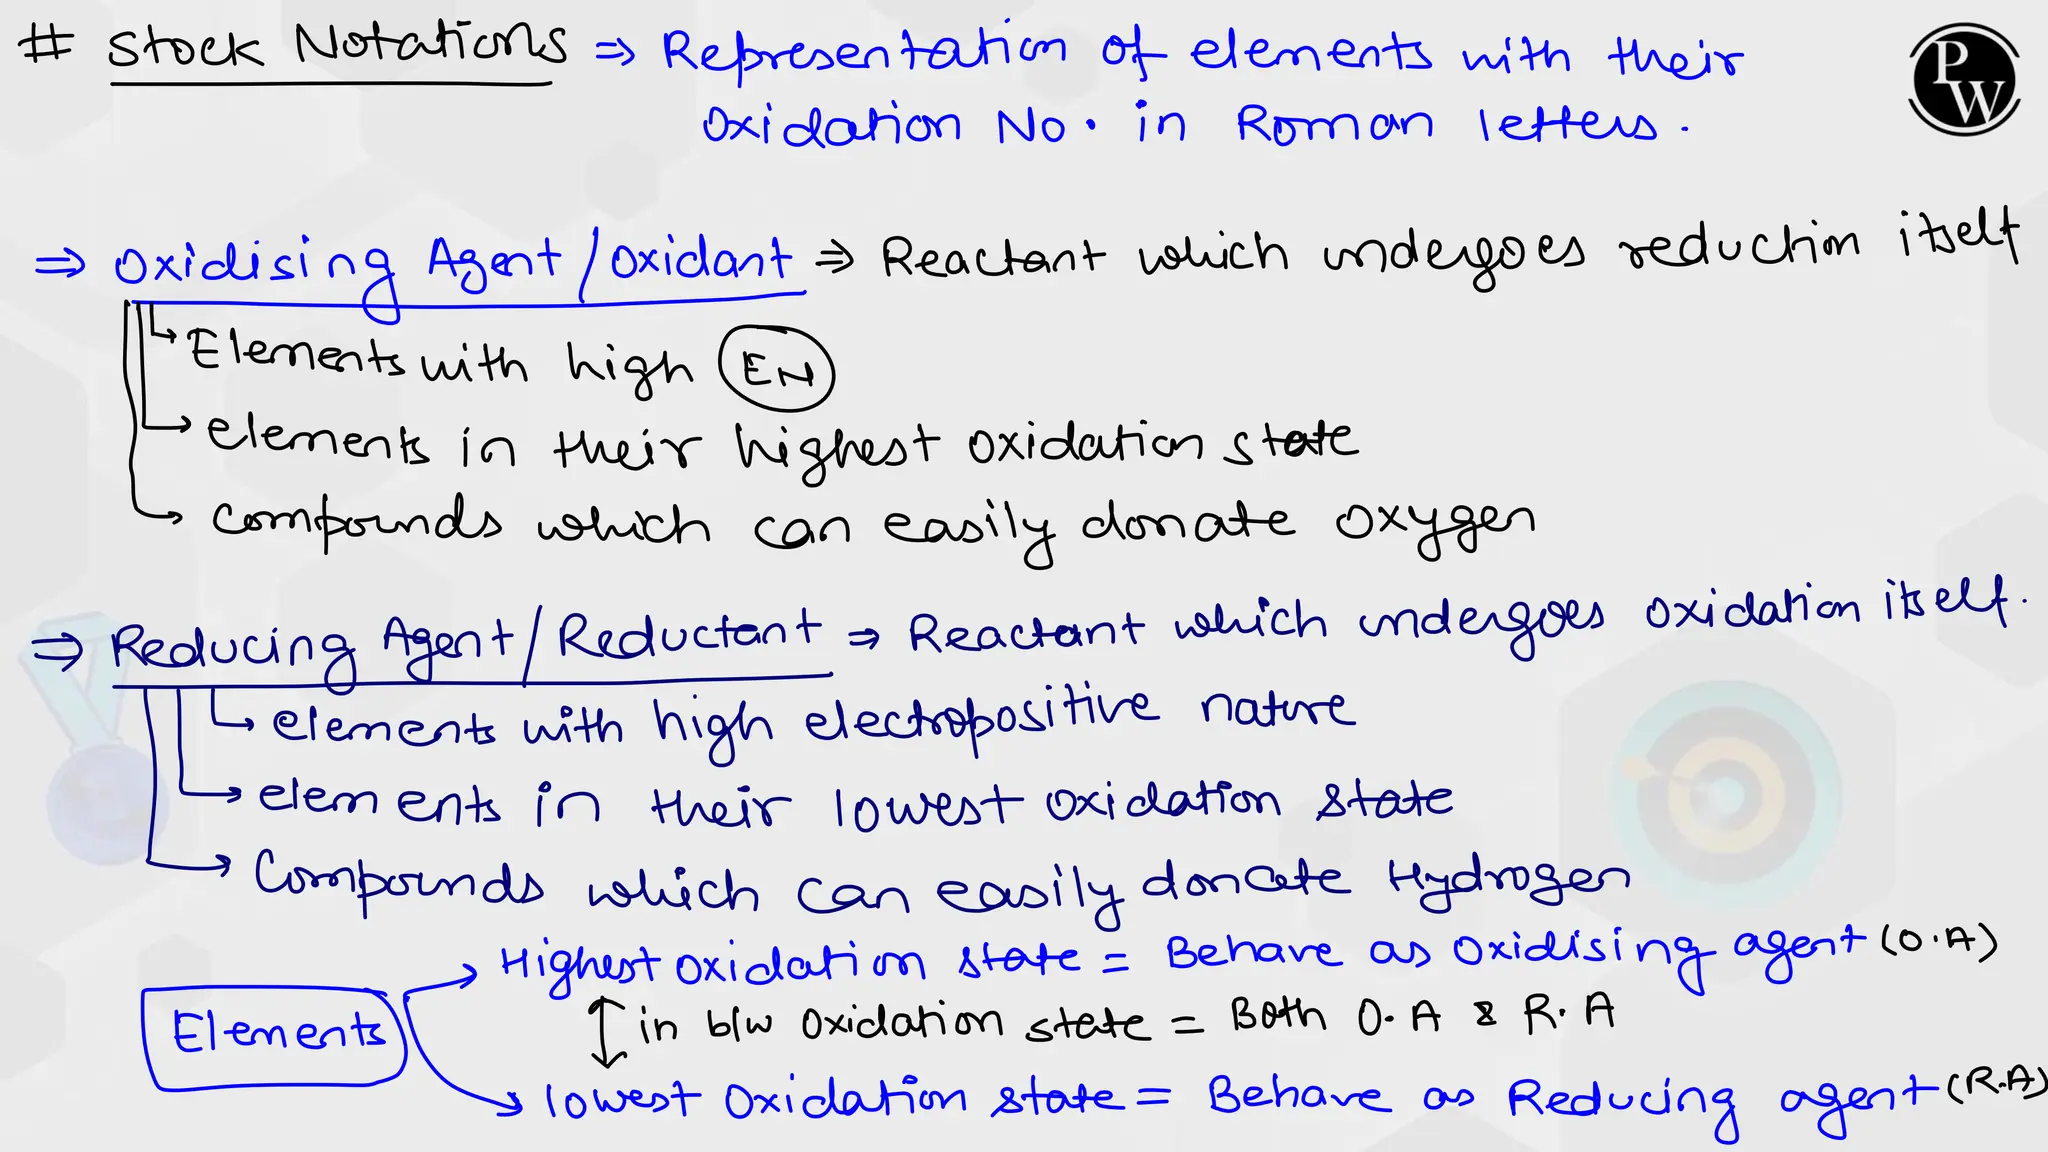 # Stock Notations ⇒ Representation of elements with their
Oxidation No. in Roman letters.
PW
⇒ Oxidising Agent / Oxidant ⇒ Reactant which undergoes reduction itself
Elements with high EN
elements in their highest oxidation state
compounds which can easily donate oxygen
⇒ Reducing Agent / Reductant ⇒ Reactant which undergoes oxidation itself.
elements with high electropositive nature
elements in their lowest oxidation state
Compounds which can easily donate Hydrogen
Highest oxidation state = Behave as Oxidising agent (O.A)
Elements
in b/w oxidation state = Both O.A & R.A
lowest Oxidation state = Behave as Reducing agent (R.A)